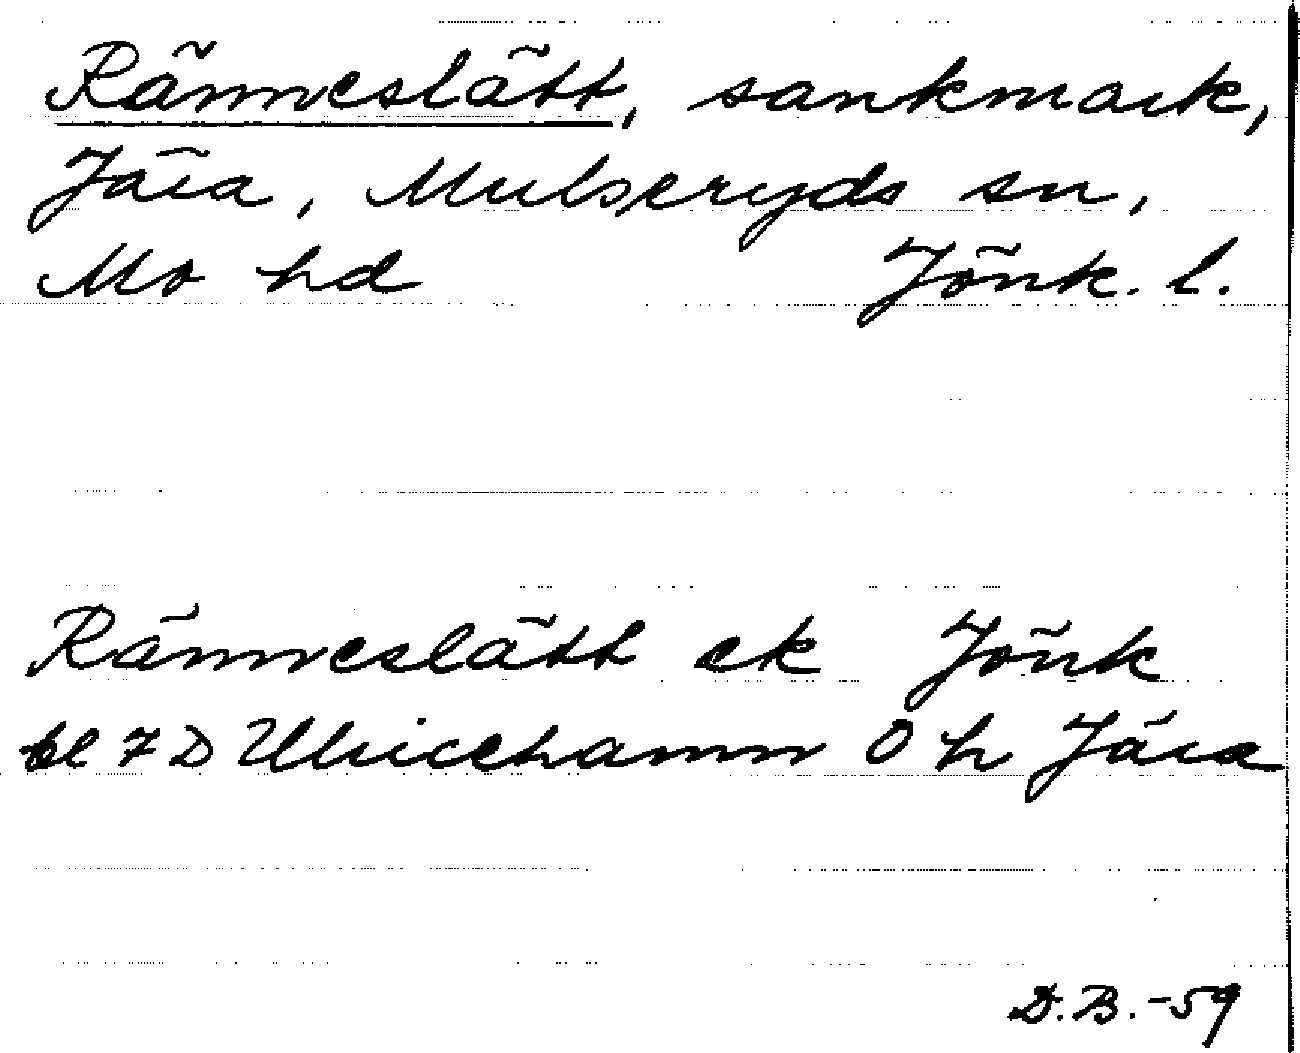 Ränneslätt, sankmark,
Jära, Mulseryds sn,
Mo hd Jönk. l.
Ränneslätt ek Jönk
bl 7 D Ulricehamn 0 h Jära
D.B.-59